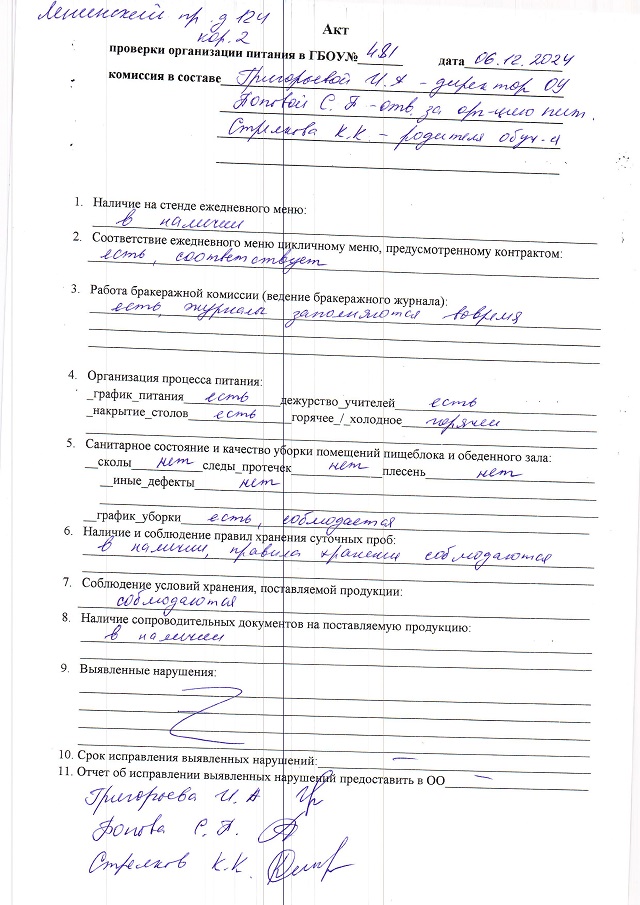 Ленинский пр. д 124
кор. 2
Акт
проверки организации питания в ГБОУ№ 481 дата 06.12.2024
комиссия в составе Григорьевой И.А - директор ОУ
Поповой С. П - отв. за орг-цию пит.
Стрелкова К.К. - родителя обуч-я
1. Наличие на стенде ежедневного меню:
в наличии
2. Соответствие ежедневного меню цикличному меню, предусмотренному контрактом:
есть, соответствует
3. Работа бракеражной комиссии (ведение бракеражного журнала):
есть, журналы заполняются вовремя
4. Организация процесса питания:
_график_питания есть дежурство_учителей есть
_накрытие_столов есть горячее_/_холодное горячее
5. Санитарное состояние и качество уборки помещений пищеблока и обеденного зала:
__сколы нет следы_протечек нет плесень нет
__иные_дефекты нет
__график_уборки есть, соблюдается
6. Наличие и соблюдение правил хранения суточных проб:
в наличии, правила хранения соблюдаются
7. Соблюдение условий хранения, поставляемой продукции:
соблюдаются
8. Наличие сопроводительных документов на поставляемую продукцию:
в наличии
9. Выявленные нарушения:
10. Срок исправления выявленных нарушений: —
11. Отчет об исправлении выявленных нарушений предоставить в ОО —
Григорьева И. А
Попова С. П.
Стрелков К.К.